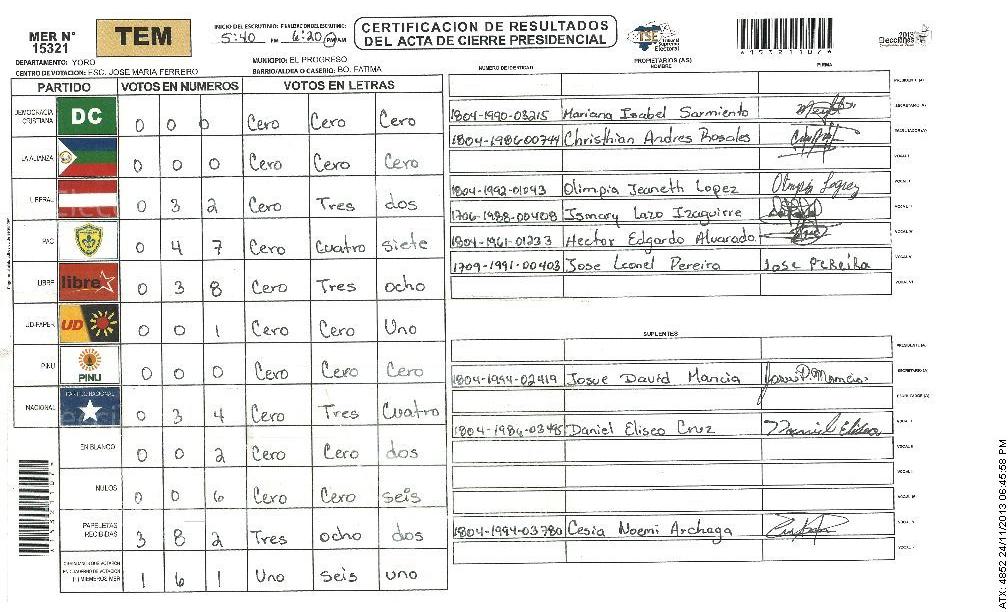 MER N° 15321
TEM
INICIO DEL ESCRUTINIO: FINALIZACION DEL ESCRUTINIO:
5:40 PM 6:20 PM AM
CERTIFICACION DE RESULTADOS
DEL ACTA DE CIERRE PRESIDENCIAL
TSE Tribunal Supremo Electoral
Elecciones 2013
DEPARTAMENTO: YORO
MUNICIPIO: EL PROGRESO
CENTRO DE VOTACION: ESC. JOSE MARIA FERREIRO
BARRIO/ALDEA O CASERIO: BO. FATIMA
PARTIDO VOTOS EN NUMEROS VOTOS EN LETRAS
DEMOCRACIA CRISTIANA DC 0 0 0 Cero Cero Cero
LA ALIANZA 0 0 0 Cero Cero Cero
LIBERAL 0 3 2 Cero Tres dos
PAC 0 4 7 Cero Cuatro siete
LIBRE libre 0 3 8 Cero Tres ocho
UD-FAPER UD 0 0 1 Cero Cero Uno
PINU PINU 0 0 0 Cero Cero Cero
NACIONAL PARTIDO NACIONAL 0 3 4 Cero Tres Cuatro
EN BLANCO 0 0 2 Cero Cero dos
NULOS 0 0 6 Cero Cero seis
PAPELETAS RECIBIDAS 3 8 2 Tres ocho dos
(1) MIEMBROS MER 1 6 1 Uno seis uno
PROPIETARIOS (AS)
NUMERO DE IDENTIDAD NOMBRE FIRMA
PRESIDENTE (A)
1804-1990-03215 Mariana Isabel Sarmiento SECRETARIO (A)
1804-1986-00744 Christhian Andres Rosales ESCRUTADOR (A)
VOCAL I
1804-1992-01043 Olimpia Jeaneth Lopez Olimpia Lopez
1706-1988-00408 Ismary Lazo Izaguirre
1804-1961-01233 Hector Edgardo Alvarado
1709-1991-00403 Jose Leonel Pereira Jose Pereira
SUPLENTES
PRESIDENTE (A)
1804-1994-02419 Josue David Mancia SECRETARIO (A)
ESCRUTADOR (A)
1804-1986-03485 Daniel Eliseo Cruz
1804-1994-03780 Cesia Noemi Archaga
ATX: 4852 24/11/2013 06:45:58 PM